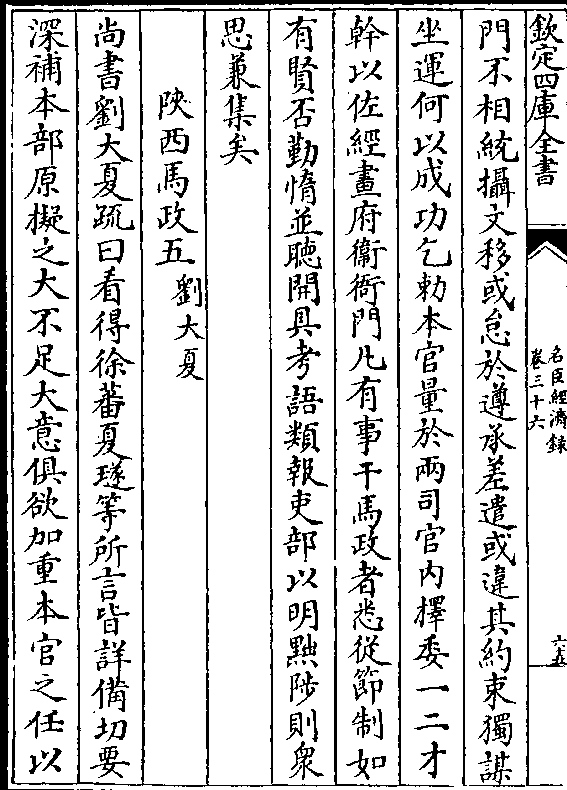 欽定四庫全書
名臣經濟錄
卷三十六
六五
門不相統攝文移或怠於遵承差遣或違其約束獨謀
坐運何以成功乞勅本官量於兩司官内擇委一二才
幹以佐經畫府衞衙門凡有事干馬政者悉從節制如
有賢否勤惰並聽開具考語類報吏部以明黜陟則衆
思兼集矣
陜西馬政五 劉大夏
尚書劉大夏疏曰看得徐蕃夏璲等所言皆詳備切要
深補本部原擬之大不足大意俱欲加重本官之任以